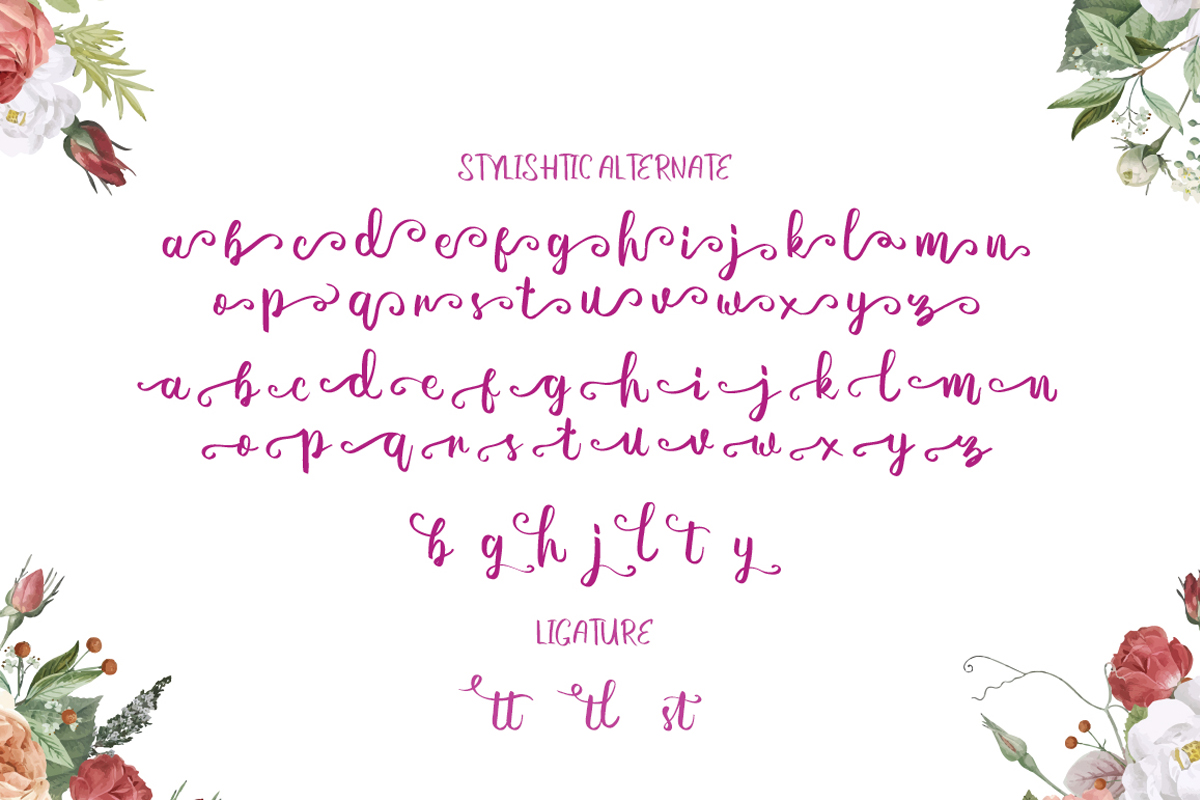 STYLISHTIC ALTERNATE
a b c d e f g h i j k l m n
o p q r s t u v w x y z
a b c d e f g h i j k l m n
o p q r s t u v w x y z
b g h j l t y
LIGATURE
tt tl st